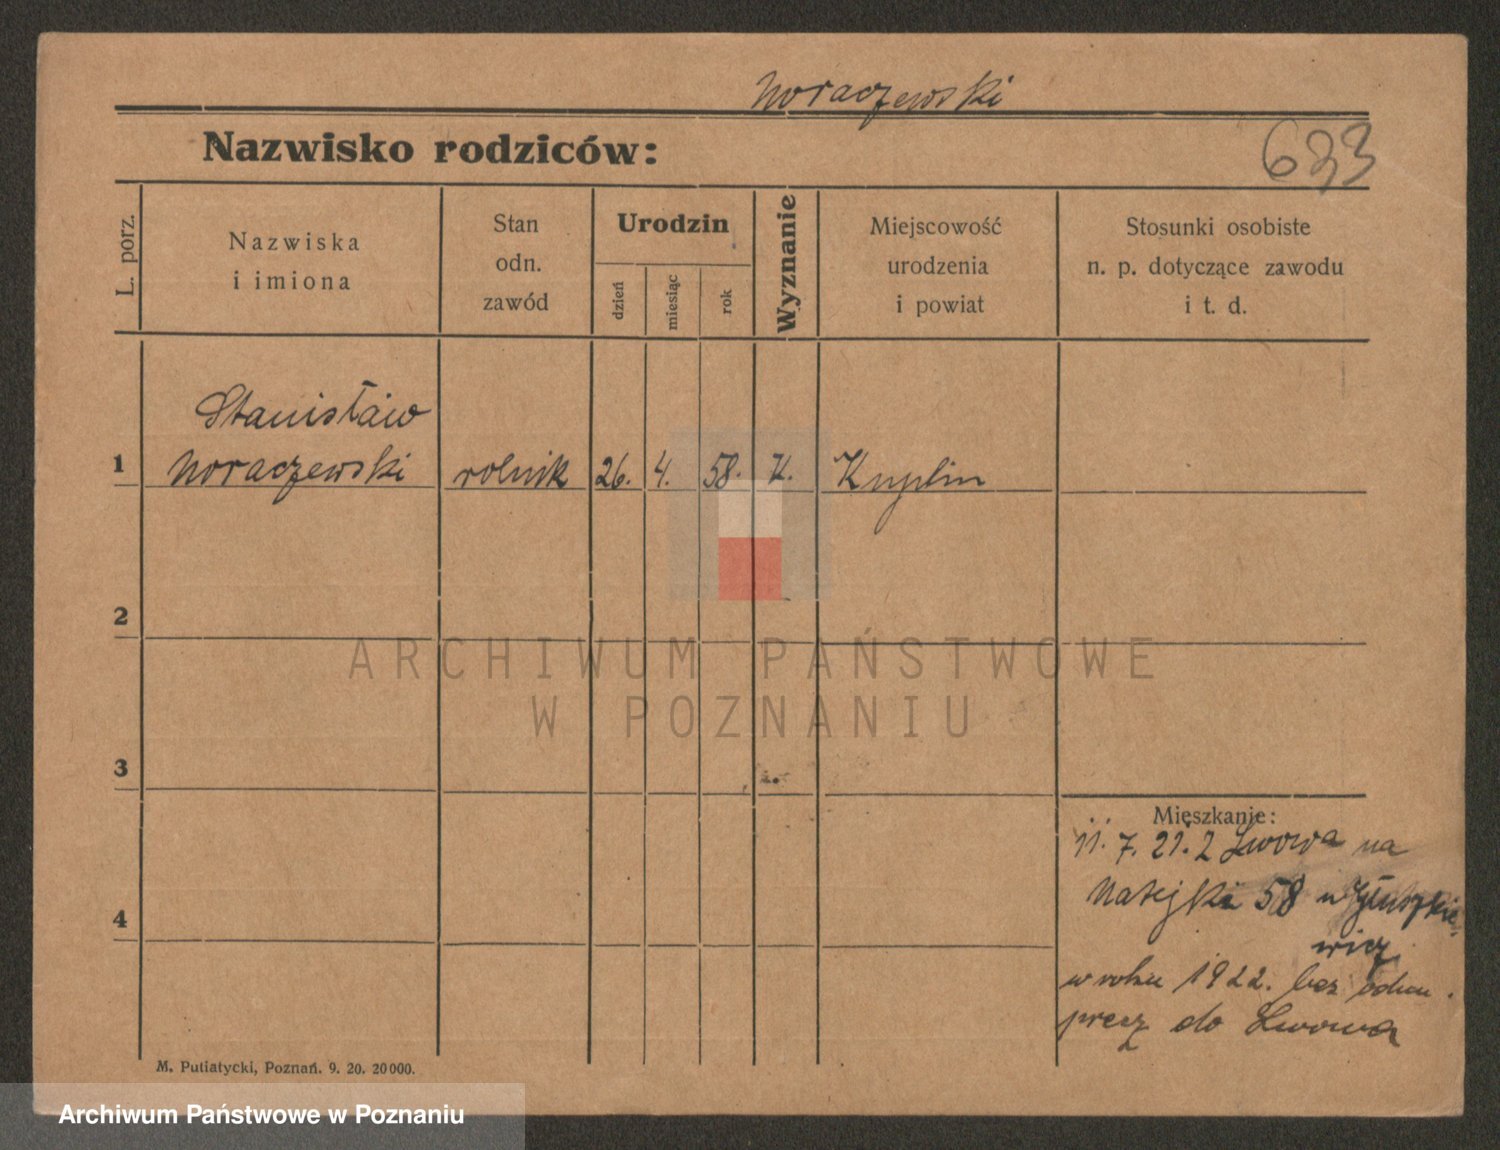 Noraczewski
Nazwisko rodziców:
633
L. porz.
Nazwiska
i imiona
Stan
odn.
zawód
Urodzin
dzień
miesiąc
rok
Wyznanie
Miejscowość
urodzenia
i powiat
Stosunki osobiste
n. p. dotyczące zawodu
i t. d.
Stanisław
1 Noraczewski rolnik 26. 4. 58. K.
2
ARCHIWUM PAŃSTWOWE
W POZNANIU
3
Mieszkanie:
11. 7. 21. z Lwowa na
Matejki 58
4
wicz
w roku 1922. bez odm.
precz do Lwowa
M. Putiatycki, Poznań. 9. 20. 20000.
Archiwum Państwowe w Poznaniu